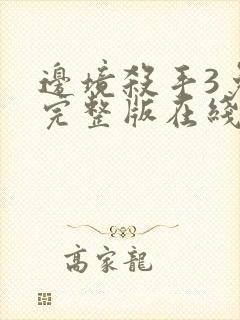 邊境殺手3免
完整版在綫
高家龍